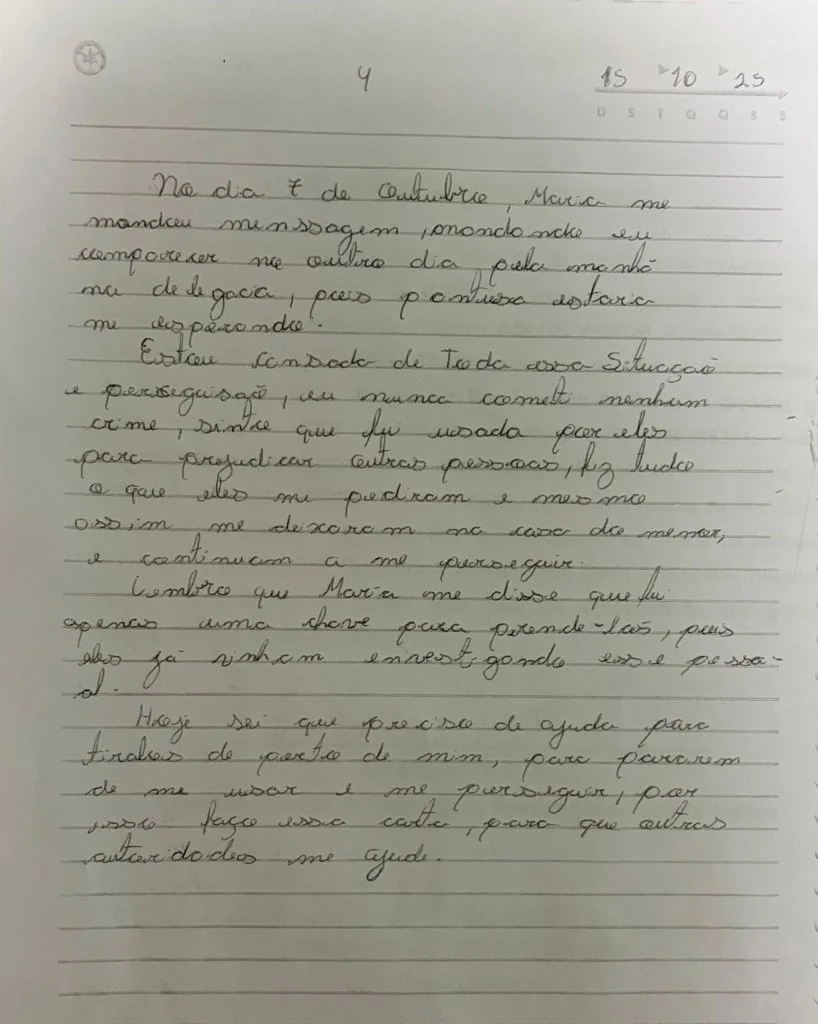 4
15 10 25
D S T Q Q S S
No dia 7 de Outubro, Maria me
mandou menssagem, mandando eu
comparecer no outro dia pela manhã
na delegacia, pois pantusa estaria
me esperando.
Estou cansada de Toda essa Situação
e persseguisão, eu nunca cometi nenhum
crime, sinto que fui usada por eles
para prejudicar outras pessoas, fiz tudo
o que eles me pediram e mesmo
assim me deixaram na casa da menor,
e continuam a me perseguir.
Lembro que Maria me disse que fui
apenas uma chave para prende-las, pois
eles já vinham envestigando esse pesso-
al.
Hoje sei que preciso de ajuda para
tiralos de perto de mim, para pararem
de me usar e me perseguir, por
isso faço essa carta, para que outras
autoridades me ajude.